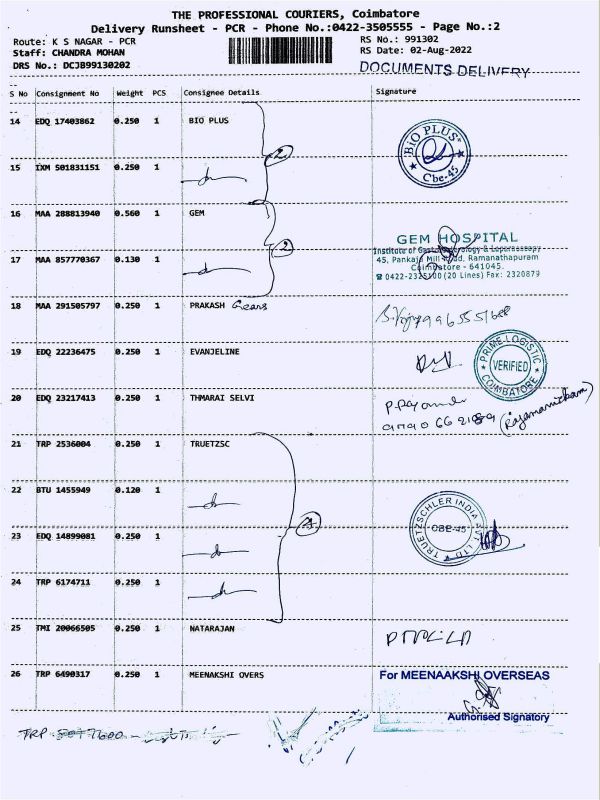 THE PROFESSIONAL COURIERS, Coimbatore
Delivery Runsheet - PCR - Phone No.:0422-3505555 - Page No.:2
Route: K S NAGAR - PCR
RS No.: 991302
Staff: CHANDRA MOHAN
RS Date: 02-Aug-2022
DRS No.: DCJB99130202
DOCUMENTS DELIVERY
S No Consignment No Weight PCS Consignee Details Signature
14 EDQ 17403862 0.250 1 BIO PLUS
BIO PLUS
Cbe-45
2
15 IXM 501831151 0.250 1
16 MAA 288813940 0.560 1 GEM
GEM HOSPITAL
Institute of Gastroenterology & Laparoscopy
45, Pankaja Mill Road, Ramanathapuram
Coimbatore - 641045.
0422-2325100 (20 Lines) Fax: 2320879
2
17 MAA 857770367 0.130 1
18 MAA 291505797 0.250 1 PRAKASH Gears
19 EDQ 22236475 0.250 1 EVANJELINE
PRIME LOGISTIC
VERIFIED
COIMBATORE
20 EDQ 23217413 0.250 1 THMARAI SELVI
(Rajamanickam)
21 TRP 2536004 0.250 1 TRUETZSC
22 BTU 1455949 0.120 1
TRUETZSCHLER INDIA PVT. LTD
CBE-45
4
23 EDQ 14899081 0.250 1
24 TRP 6174711 0.250 1
25 TMI 20066505 0.250 1 NATARAJAN
26 TRP 6490317 0.250 1 MEENAKSHI OVERS
For MEENAAKSHI OVERSEAS
Authorised Signatory
TRP